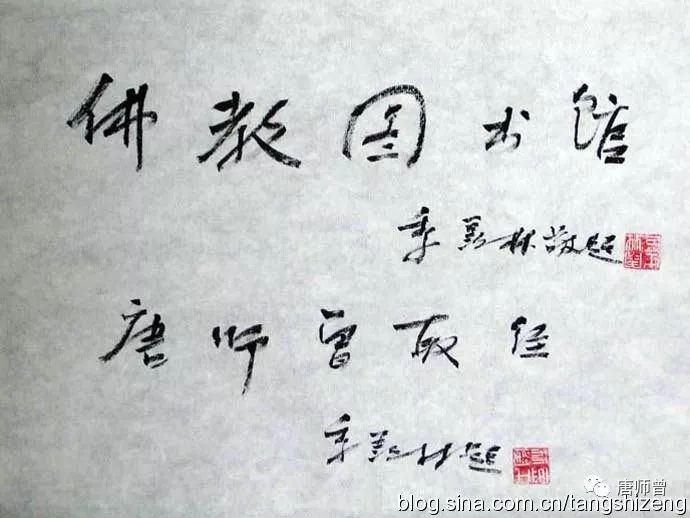 佛教图书馆
季羡林敬题
唐师曾取经
季羡林题
唐师曾
blog.sina.com.cn/tangshizeng